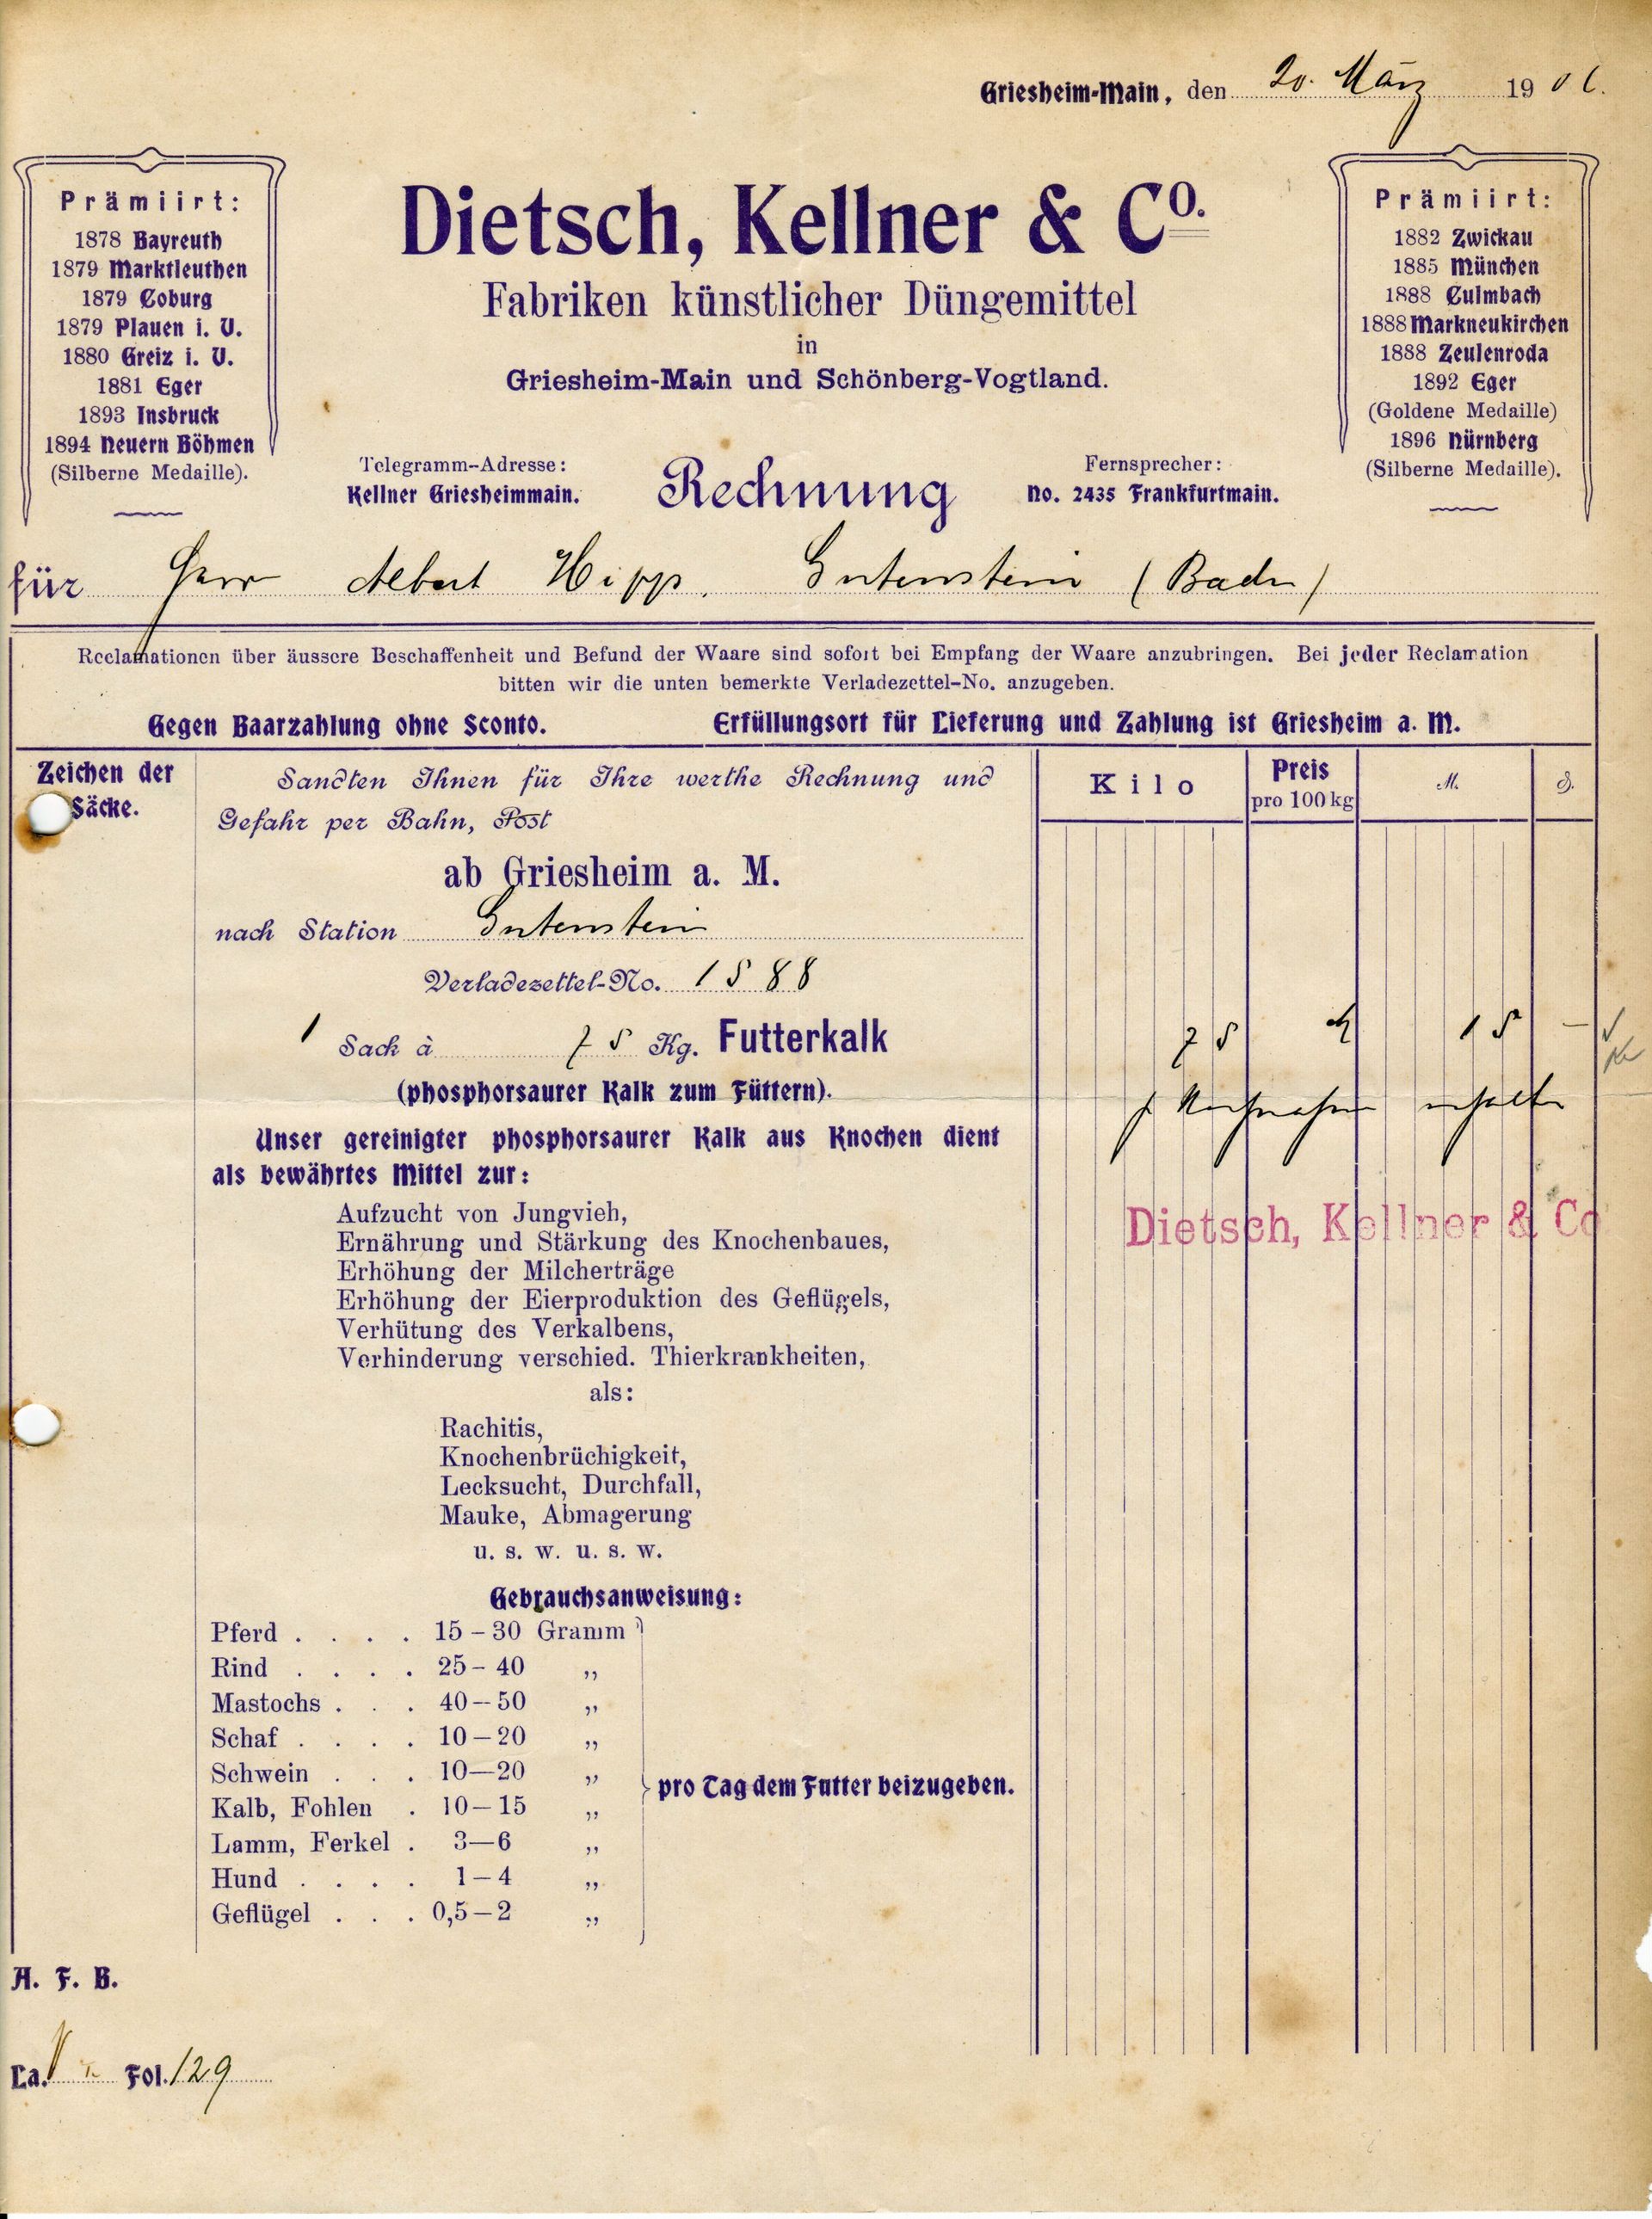 Griesheim-Main, den 20. März 1906.
Prämiirt:
1878 Bayreuth
1879 Marktleuthen
1879 Coburg
1879 Plauen i. V.
1880 Greiz i. V.
1881 Eger
1893 Insbruck
1894 Neuern Böhmen
(Silberne Medaille).
Dietsch, Kellner & Co.
Fabriken künstlicher Düngemittel
in
Griesheim-Main und Schönberg-Vogtland.
Prämiirt:
1882 Zwickau
1885 München
1888 Culmbach
1888 Markneukirchen
1888 Zeulenroda
1892 Eger
(Goldene Medaille)
1896 Nürnberg
(Silberne Medaille).
Telegramm-Adresse:
Kellner Griesheimmain.
Rechnung
Fernsprecher:
No. 2435 Frankfurtmain.
für Herr Albert Hipp. Gutenstein (Baden)
Reclamationen über äussere Beschaffenheit und Befund der Waare sind sofort bei Empfang der Waare anzubringen. Bei jeder Reclamation
bitten wir die unten bemerkte Verladezettel-No. anzugeben.
Gegen Baarzahlung ohne Sconto. Erfüllungsort für Lieferung und Zahlung ist Griesheim a. M.
Zeichen der
Säcke.
Kilo
Preis
pro 100 kg
M.
₰.
Sandten Ihnen für Ihre werthe Rechnung und
Gefahr per Bahn, Post
ab Griesheim a. M.
nach Station Gutenstein
Verladezettel-No. 1588
1 Sack à 75 Kg. Futterkalk 75 15 –
(phosphorsaurer Kalk zum Füttern).
p Nachnahme erhalten
Unser gereinigter phosphorsaurer Kalk aus Knochen dient
als bewährtes Mittel zur:
Dietsch, Kellner & Co
Aufzucht von Jungvieh,
Ernährung und Stärkung des Knochenbaues,
Erhöhung der Milcherträge
Erhöhung der Eierproduktion des Geflügels,
Verhütung des Verkalbens,
Verhinderung verschied. Thierkrankheiten,
als:
Rachitis,
Knochenbrüchigkeit,
Lecksucht, Durchfall,
Mauke, Abmagerung
u. s. w. u. s. w.
Gebrauchsanweisung:
Pferd . . . . 15–30 Gramm
Rind . . . . 25–40 „
Mastochs . . . 40–50 „
Schaf . . . . 10–20 „
Schwein . . . 10–20 „
pro Tag dem Futter beizugeben.
Kalb, Fohlen . 10–15 „
Lamm, Ferkel . 3–6 „
Hund . . . . 1–4 „
Geflügel . . . 0,5–2 „
A. F. B.
La. Fol. 129